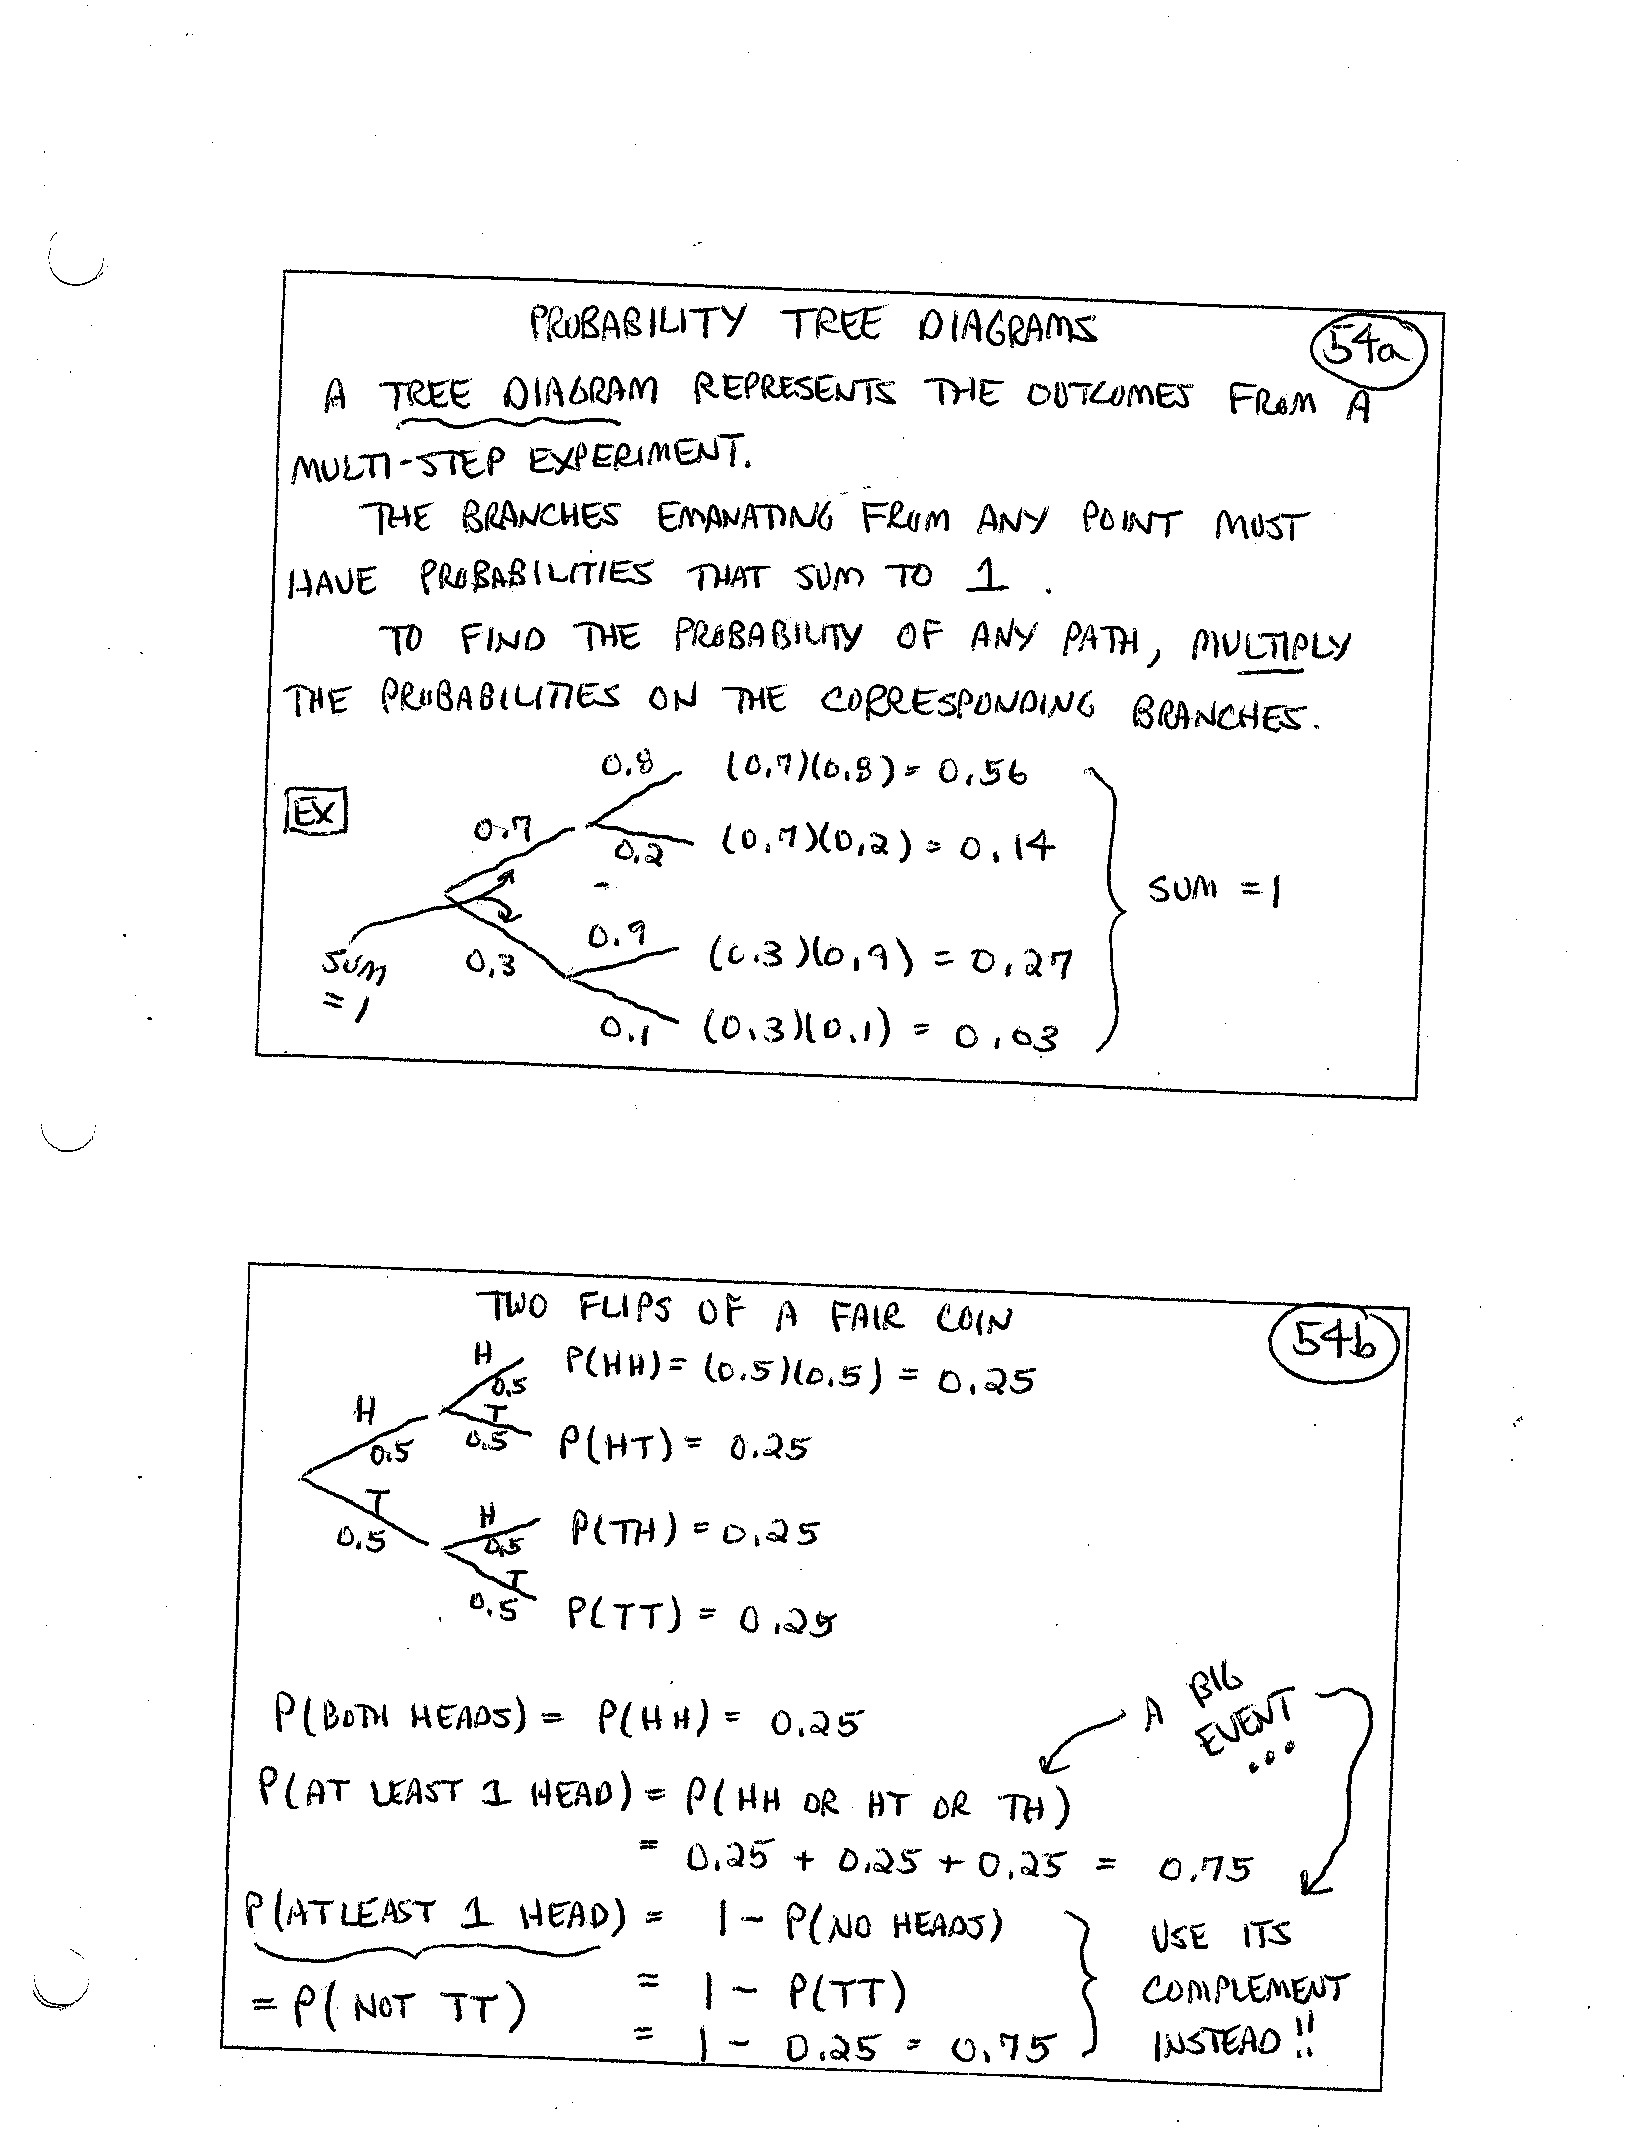 PROBABILITY TREE DIAGRAMS
54a
A TREE DIAGRAM REPRESENTS THE OUTCOMES FROM A
MULTI-STEP EXPERIMENT.
THE BRANCHES EMANATING FROM ANY POINT MUST
HAVE PROBABILITIES THAT SUM TO 1.
TO FIND THE PROBABILITY OF ANY PATH, MULTIPLY
THE PROBABILITIES ON THE CORRESPONDING BRANCHES.
EX
0.8 (0.7)(0.8) = 0.56
0.7
0.2 (0.7)(0.2) = 0.14
SUM = 1
0.9 (0.3)(0.9) = 0.27
SUM
= 1
0.3
0.1 (0.3)(0.1) = 0.03
TWO FLIPS OF A FAIR COIN
54b
H 0.5 P(HH) = (0.5)(0.5) = 0.25
H 0.5
T 0.5 P(HT) = 0.25
T 0.5
H 0.5 P(TH) = 0.25
T 0.5 P(TT) = 0.25
P(BOTH HEADS) = P(HH) = 0.25
A BIG
EVENT
...
P(AT LEAST 1 HEAD) = P(HH OR HT OR TH)
= 0.25 + 0.25 + 0.25 = 0.75
P(AT LEAST 1 HEAD) = 1 - P(NO HEADS)
= P(NOT TT) = 1 - P(TT)
= 1 - 0.25 = 0.75
USE ITS
COMPLEMENT
INSTEAD!!